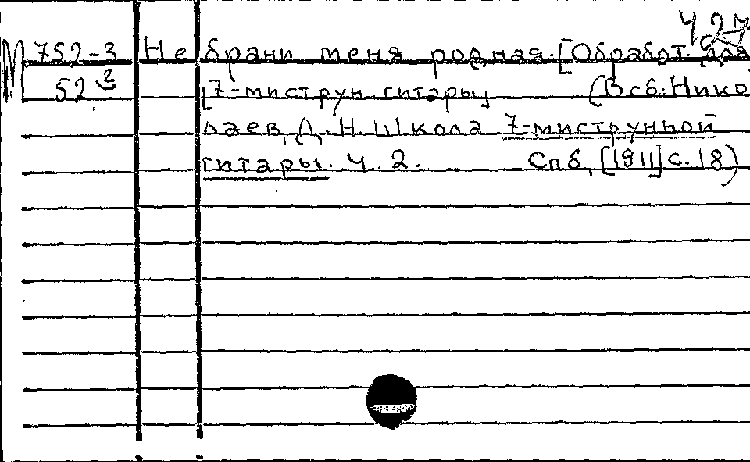 427
М 752-3 Не брани меня родная. [Обработ. для
52 3 7-миструн. гитары (В сб.: Нико
лаев, Д. Н. Школа 7-миструнной
гитары. Ч. 2. Спб, [1911] с. 18)